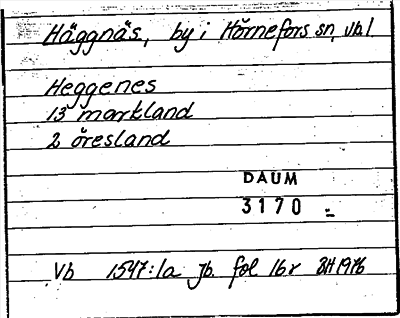 Häggnäs, by i Hörnefors sn, vb.
Heggenes
13 markland
2 öresland
DAUM
3170
Vb 1547:1a Jb. fol 16r BH 1976